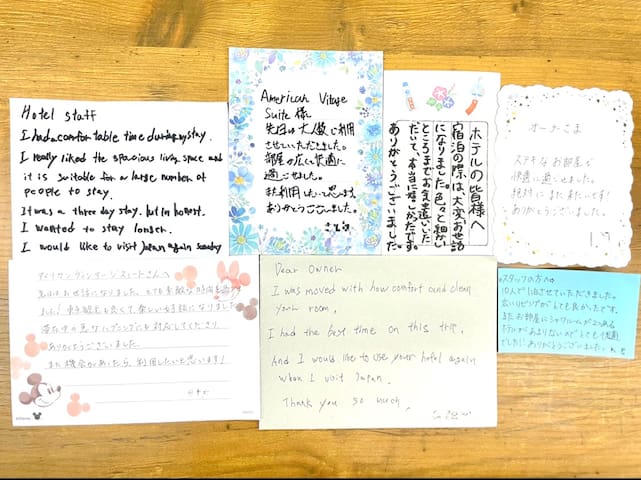 Hotel staff
I had a comfortable time during my stay.
I really liked the spacious living space and
it is suitable for a large number of
people to stay.
It was a three day stay. but in honest.
I wanted to stay longer.
I would like to visit Japan again someday
American Village
Suite 様
先日は大人数で利用
させていただきました。
部屋が広くて快適に
過ごせました。
また利用したいと思います
ありがとうございました。
ホテルの皆様へ
宿泊の際は、大変お世話
になりました。色々と細かい
ところまでお気遣いいた
だいて、本当に嬉しかったです。
ありがとうございました。
オーナーさま
ステキなお部屋で
快適に過ごせました。
絶対にまた来たいです!
ありがとうございました。
アメリカンヴィレッジスイートさんへ
先日はお世話になりました。とても素敵な時間を過ごせ
ました!
楽しい女子旅になりました
滞在中の急なハプニングにも対応してくださり
ありがとうございました。
また機会があったら、利用したいと思います!
Dear Owner
I was moved with how comfort and clean
your room,
I had the best time on this trip,
And I would like to use your hotel again
when I visit Japan.
Thank you so much,
スタッフの方へ
10人で1泊させていただきました。
広いリビングがとても良かったです。
またお部屋にシャワールームが2つある
ホテルがあまりないのでとても快適
でした!ありがとうございました。